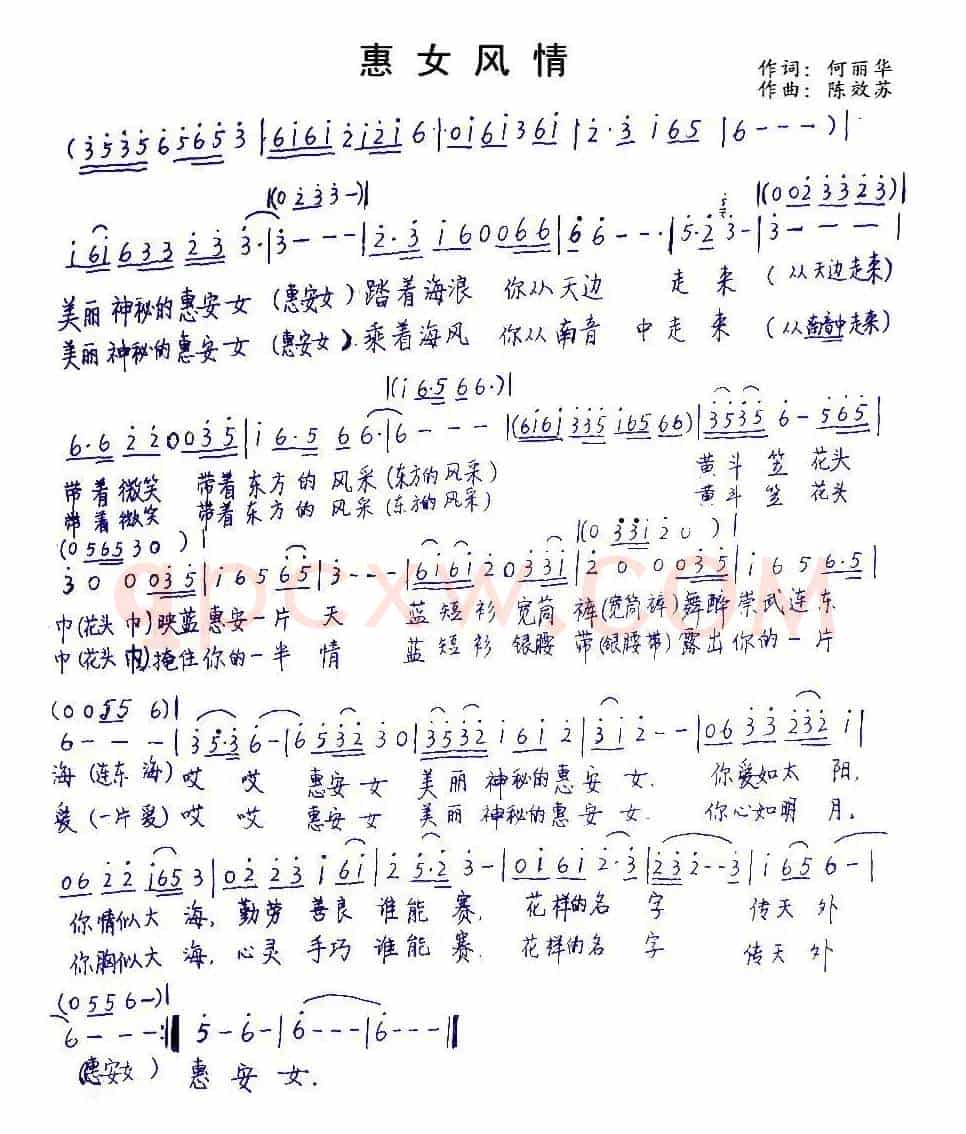 惠女风情
作词：何丽华
作曲：陈效苏
(3535656 53|6i6i2i2i 6|0i6i36i|2·3 i65|6---)|
|(0 2 3 3-)|
|(0 0 2 3 3 2 3)|
i6i633 23 3·|3---|2·3 i60066|6 6--·|5·2 3-|3---|
美丽神秘的惠安女(惠安女)踏着海浪 你从天边 走来(从天边走来)
美丽神秘的惠安女(惠安女)乘着海风 你从南音 中走来(从南音中走来)
|(i 6·5 6 6·)|
6·6 2 2 0 0 3 5|i 6·5 6 6·|6---|(6i6i 335 i65 66)|3535 6-565|
带着微笑 带着东方的风采(东方的风采) 黄斗笠 花头
带着微笑 带着东方的风采(东方的风采) 黄斗笠 花头
(0 5 6 5 3 0)|
|(0 3 3 i 2 0)|
3 0 0 0 3 5|i 6 5 6 5|3---|6i6i 2 0 3 3 i|2 0 0 0 3 5|i 6 5 6·5|
qpcxw.com
巾(花头巾)映蓝惠安一片天 蓝短衫 宽筒裤(宽筒裤)舞醉崇武连东
巾(花头巾)掩住你的一半情 蓝短衫 银腰带(银腰带)露出你的一片
(0 0 5 5 6)|
6---|3 5·3 6-|6 5 3 2 3 0|3 5 3 2 i 6 i 2|3 i 2--|0 6 3 3 2 3 2 i|
海(连东海)哎 哎 惠安女 美丽神秘的惠安女. 你爱如太阳,
爱(一片爱)哎 哎 惠安女 美丽神秘的惠安女. 你心如明月.
0 6 2 2 i 6 5 3|0 2 2 3 i 6 i|2 5·2 3-|0 i 6 i 2·3|2 3 2--3|i 6 5 6-|
你情似大海,勤劳善良谁能赛. 花样的名字 传天外
你胸似大海,心灵手巧谁能赛. 花样的名字 传天外
(0 5 5 6-)|
6---:‖5-6-|6---|6---‖
(惠安女) 惠安女.